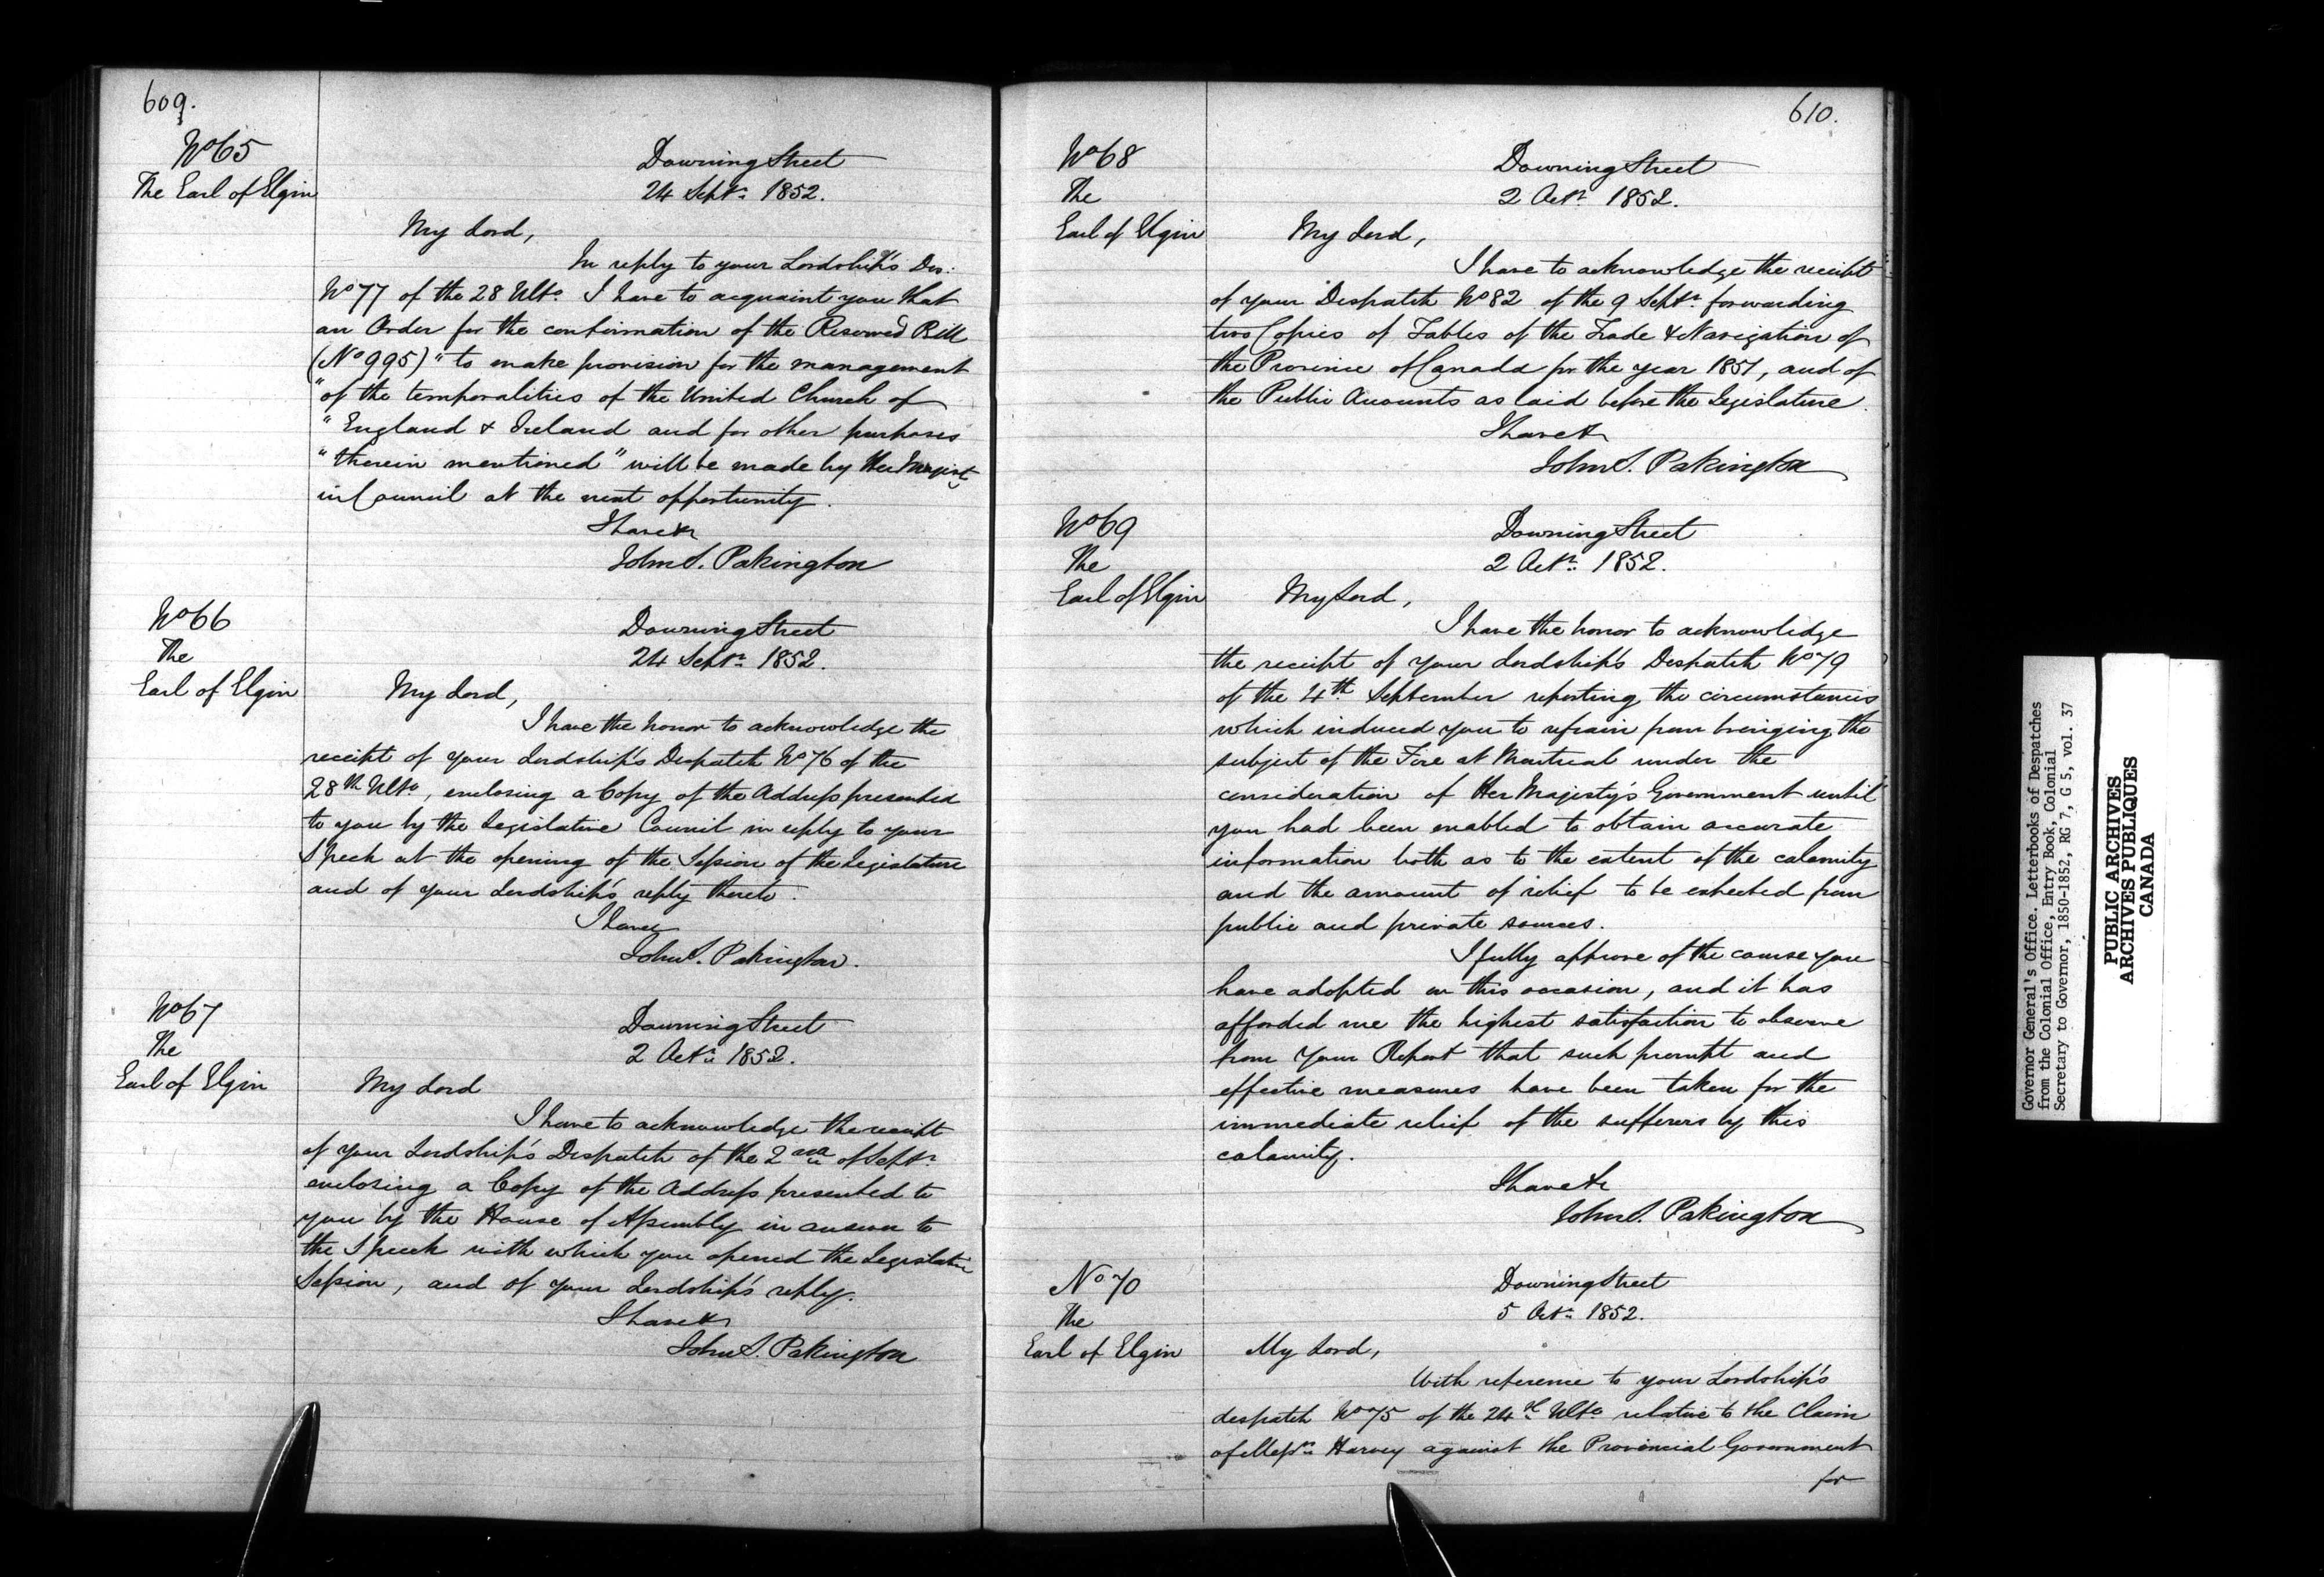 609.
No 65
The Earl of Elgin
Downing Street
24 Septr. 1852.
My Lord,
In reply to your Lordship's Des:
No 77 of the 28 Ulto. I have to acquaint you that
an Order for the confirmation of the Reserved Bill
(No 995) "to make provision for the management
"of the temporalities of the United Church of
"England & Ireland and for other purposes
"therein mentioned" will be made by Her Majesty
in Council at the next opportunity.
I have &c
John S. Pakington
No 66
The
Earl of Elgin
Downing Street
24 Septr. 1852.
My Lord,
I have the honor to acknowledge the
receipt of your Lordship's Despatch No 76 of the
28th Ulto, enclosing a Copy of the Address presented
to you by the Legislative Council in reply to your
Speech at the opening of the Session of the Legislature
and of your Lordship's reply thereto.
I have
John S. Pakington.
No 67
The
Earl of Elgin
Downing Street
2 Octr. 1852.
My Lord
I have to acknowledge the receipt
of your Lordship's Despatch of the 2nd of Septr.
enclosing a Copy of the Address presented to
you by the House of Assembly in answer to
the Speech with which you opened the Legislative
Session, and of your Lordship's reply.
I have &c
John S. Pakington
610.
No 68
The
Earl of Elgin
Downing Street
2 Octr 1852.
My Lord,
I have to acknowledge the receipt
of your Despatch No 82 of the 9 Septr. forwarding
two Copies of Tables of the Trade & Navigation of
the Province of Canada for the year 1851, and of
the Public Accounts as laid before the Legislature.
I have &c
John S. Pakington
No 69
The
Earl of Elgin
Downing Street
2 Octr. 1852.
My Lord,
I have the honor to acknowledge
the receipt of your Lordship's Despatch No 79
of the 4th September reporting the circumstances
which induced you to refrain from bringing the
subject of the Fire at Montreal under the
consideration of Her Majesty's Government until
you had been enabled to obtain accurate
information both as to the extent of the calamity
and the amount of relief to be expected from
public and private sources.
I fully approve of the course you
have adopted on this occasion, and it has
afforded me the highest satisfaction to observe
from your Report that such prompt and
effective measures have been taken for the
immediate relief of the sufferers by this
calamity.
I have &c
John S. Pakington
No 70
The
Earl of Elgin
Downing Street
5 Octr. 1852.
My Lord,
With reference to your Lordship's
despatch No 75 of the 24th Ulto relative to the Claim
of Messrs. Harvey against the Provincial Government
for
Governor General's Office. Letterbooks of Despatches
from the Colonial Office, Entry Book, Colonial
Secretary to Governor, 1850-1852, RG 7, G 5, vol. 37
PUBLIC ARCHIVES
ARCHIVES PUBLIQUES
CANADA